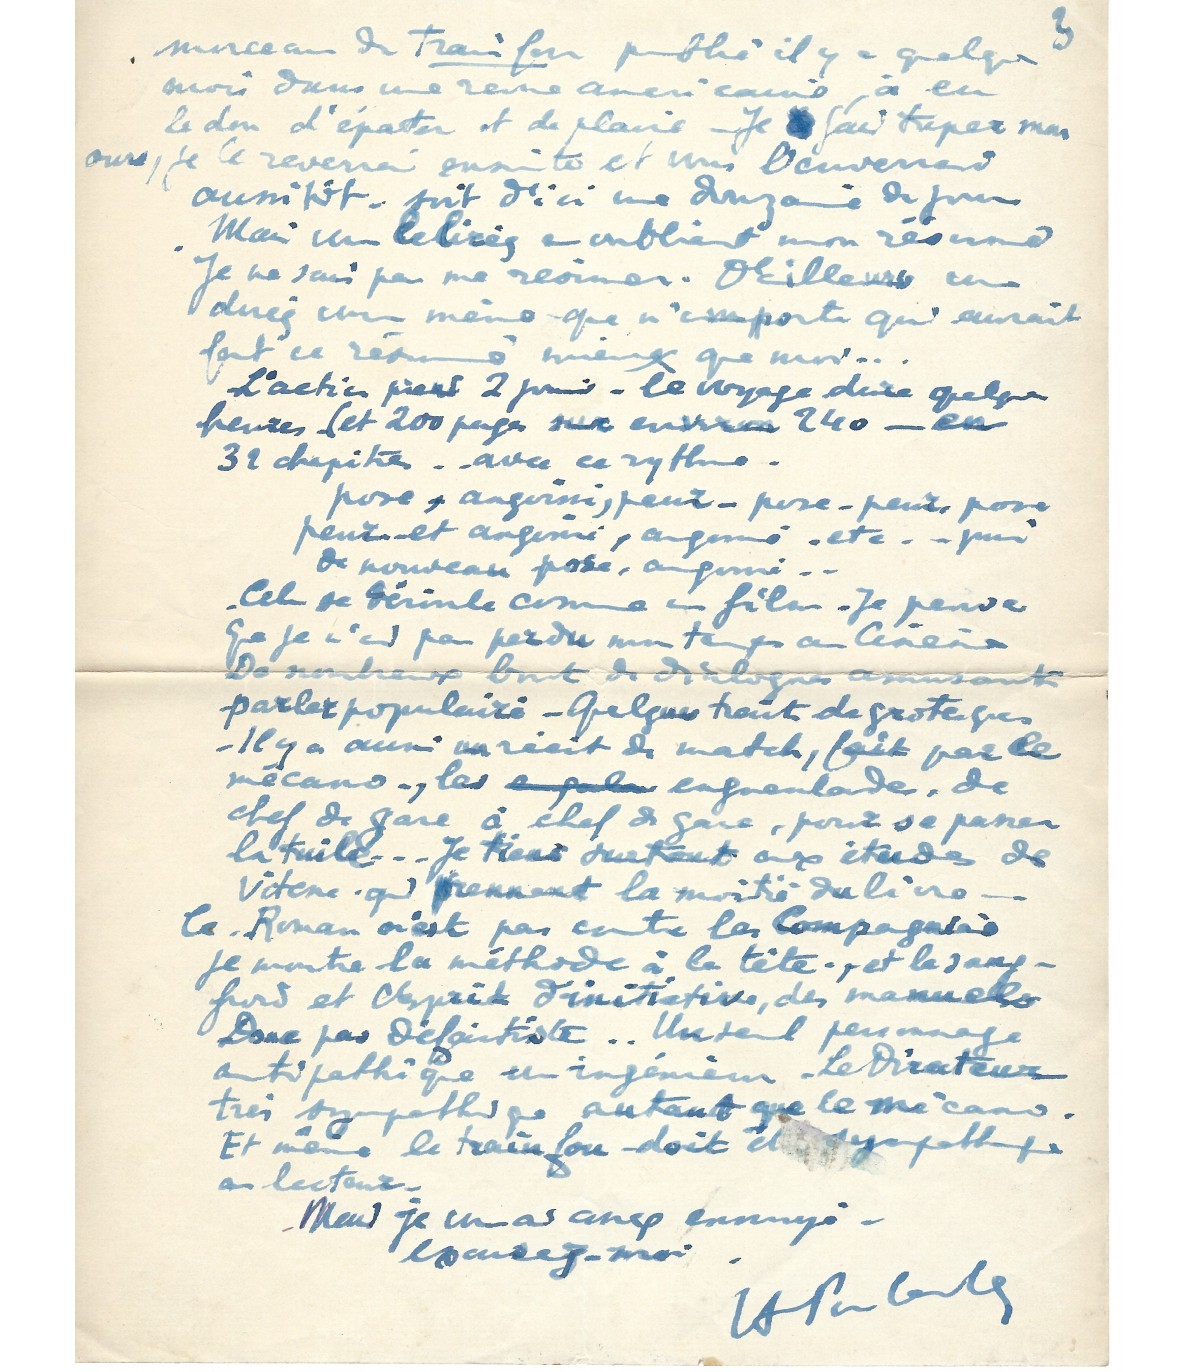 3
morceau de Train fou publié il y a quelques
mois dans une revue américaine, a eu
le don d'épater et de plaire - Je fais taper mon
ours, je le reverrai ensuite et vous l'enverrai
aussitôt - soit d'ici une douzaine de jours
Mais vous le lirez en oubliant mon résumé
Je ne sais pas me résumer. D'Ailleurs vous
direz vous même que n'importe qui aurait
fait ce résumé mieux que moi...
L'action prend 2 jours - le voyage dure quelques
heures (et 200 pages sur environ 240 - en
32 chapitres.. avec ce rythme.
pose, angoisse, peur - pose - peur, pose
peur - et angoisse, angoisse. etc. - puis
de nouveau pose, angoisse --
Cela se déroule comme un film. Je pense
que je n'ai pas perdu mon temps au Cinéma
De nombreux bouts de dialogues amusants
parler populaire - Quelques traits de grotesques
- Il y a aussi un récit de match, fait par le
mécano., les engueulades. de
chef de gare à chef de gare, pour se passer
la tuile... Je tiens surtout aux études de
Vitesse qui prennent la moitié du livre -
Ce Roman n'est pas contre les Compagnies
Je montre la méthode à la tête, et le sang-
froid et l'esprit d'initiative, des manuels
Donc pas défaitiste.. Un seul personnage
antipathique un ingénieur - Le Directeur
très sympathique autant que le mécano.
Et même le train fou doit être sympathique
au lecteur.
Mais je vous ai assez ennuyé -
excusez-moi.